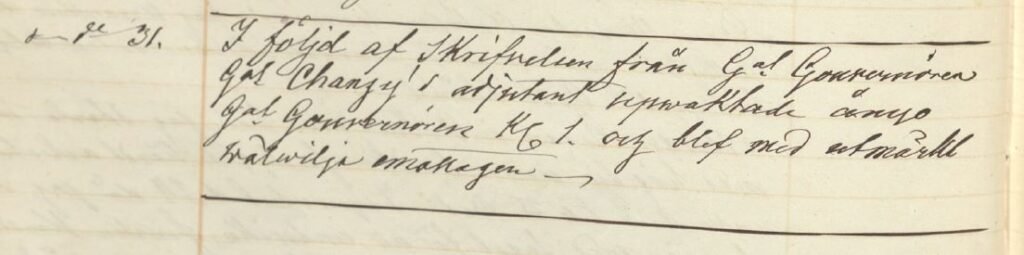 d° 31.
I följd af Skrifvelsen från Gal Gouvernören
Gal Chanzy's adjutant upwaktade ånyo
Gal Gouvernören Kl. 1. och blef med utmärkt
wälwilja emottagen —